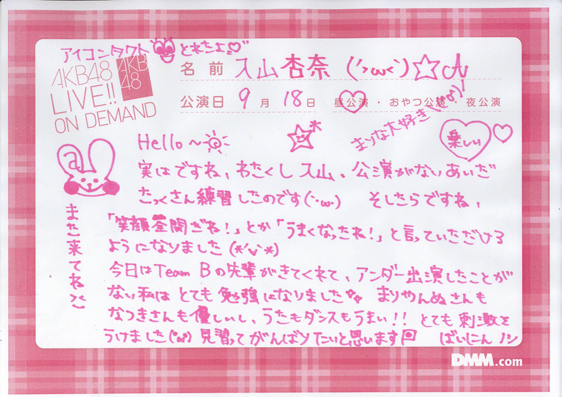 アイコンタクトとれたよ♡
AKB48
LIVE!!
ON DEMAND
AKB
48
名前 入山杏奈 (´>ω<`)☆A
公演日 9月18日 昼公演・おやつ公演・夜公演
まりな大好き
楽しい
Hello〜
実はですね、わたくし入山、公演がないあいだ
たっくさん練習したのです(・ω・) そしたらですね、
「笑顔全開だね！」とか「うまくなったね！」と言っていただける
ようになりました(*'v'*)
今日はTeam Bの先輩がきてくれて、アンダー出演したことが
ない私はとても勉強になりました。 まりやんぬさんも
なつきさんも優しいし、うたもダンスもうまい!! とても刺激を
うけました(°ω°) 見習ってがんばりたいと思います ばいにん
また来てね
DMM.com